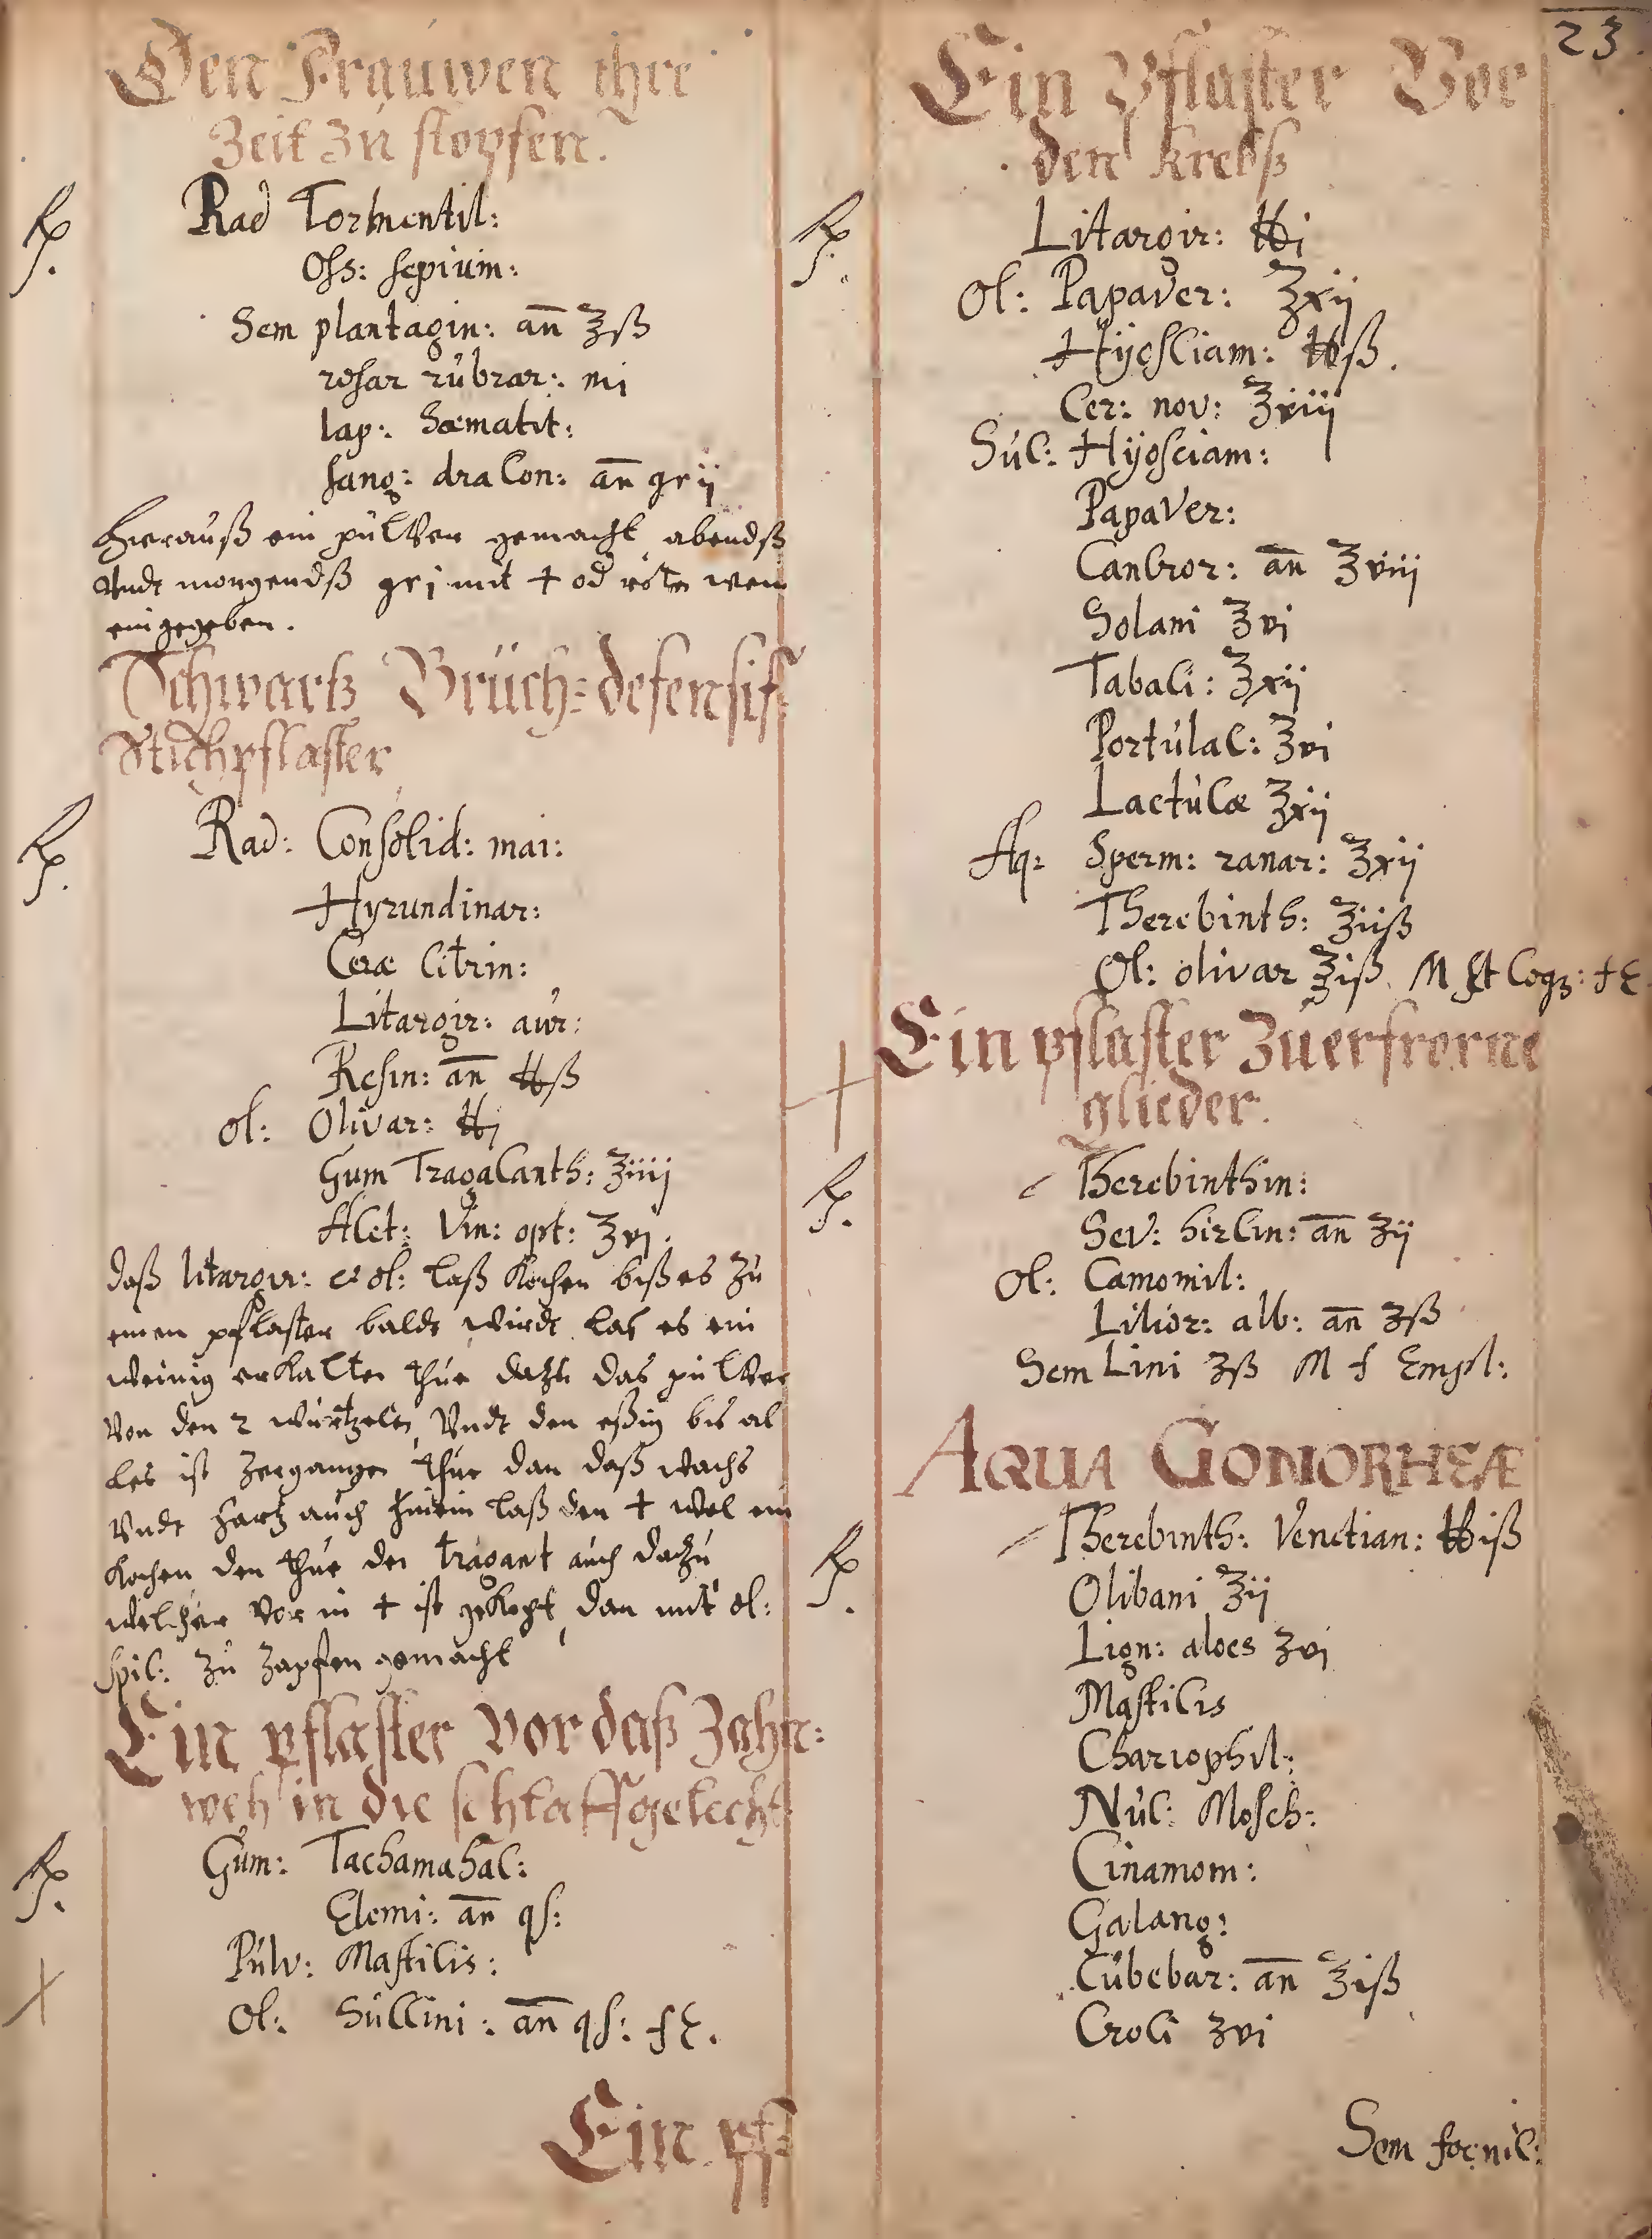 Den Frauwen ihre
Zeit zu stopfen.
℞. Rad Tormentil:
Oss: sepium:
Sem plantagin: añ ʒß
rosar rubrar: mj
lap: hæmatit:
sang: dracon: añ gr ij
hierauß ein pulver gemacht, abendß
vndt morgendß gr j mit + od roten wein
eingegeben.
Schwartz Brüch= defensif
Stichpflaster
℞. Rad: Consolid: mai:
Hyrundinar:
Ceræ Citrin:
Litargir: aur:
Resin: añ ℔ß
ol: Olivar: ℔j
Gum Tragacanth: ℥iiij
Acet: Vin: opt: ℥vj.
daß litargir: et ol: laß kochen biß es zu
einen pflaster baldt wirdt, las es ein
weinig erkalten thue dazu das pulver
von den 2 wurtzeln, vndt den eßig bis al
les ist zergangen thue dan daß wachs
vndt hartz auch hinein laß den + wol ein
kochen den thue den tragant auch dazu
welcher vor in + ist gekocht, dan mit ol:
spic: zu zapfen gemacht
Ein pflaster vor daß Zahn:
weh in die schlaff gelecht
℞. Gum: Tachamahac:
Elemi: añ qs:
Pulv: Masticis:
Ol: Succini: añ qs: f E.
Ein pfl
23.
Ein Pflaster Vor
den krebß
℞. Litargir: ℔j
Ol: Papaver: ℥xij
Hyosciam: ℔ß.
Cer: nov: ℥xiij
Suc: Hyosciam:
Papaver:
Cancror: añ ℥viij
Solani ℥vj
Tabaci: ℥xij
Portulac: ℥vj
Lactucæ ℥xij
Aq: Sperm: ranar: ℥xij
Therebinth: ℥iiß
Ol: olivar ℥iß. M et Coq: f E
Ein pflaster Zuerfrorne
glieder.
℞. Therebinthin:
Sev: hircin: añ ʒij
Ol: Camomil:
Lilior: alb: añ ʒß
Sem Lini ʒß M f Empl:
AQUA GONORHEÆ
℞. Therebinth: Venetian: ℔iß
Olibani ℥ij
Lign: aloes ʒvj
Masticis
Chariophil:
Nuc: Mosch:
Cinamom:
Galang:
Cubebar: añ ℥iß
Croci ʒvj
Sem foenic: